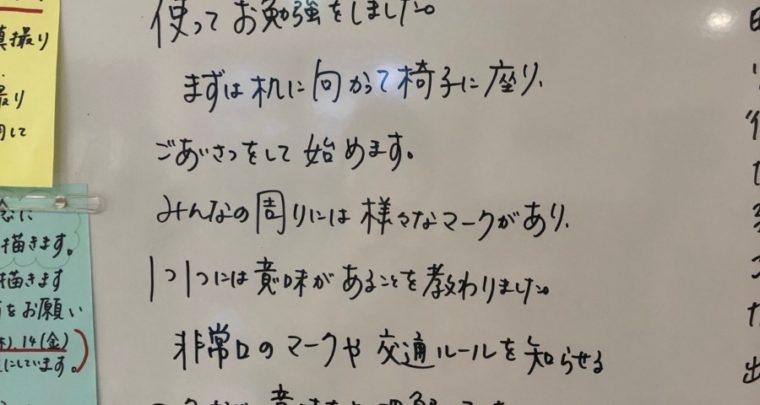 使ってお勉強をしました。
まずは机に向かって椅子に座り、
ごあいさつをして始めます。
みんなの周りには様々なマークがあり、
1つ1つには意味があることを教わりました。
非常口のマークや交通ルールを知らせる
撮り
撮り
して
に
描きます。
描きます
をお願い
14(金)
にしています。